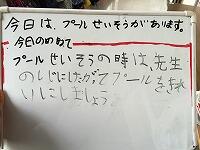 今日は、プールせいそうがあります。
今日のめあて
プールせいそうの時は、先生
のしじにしたがってプールをきれ
いにしましょう